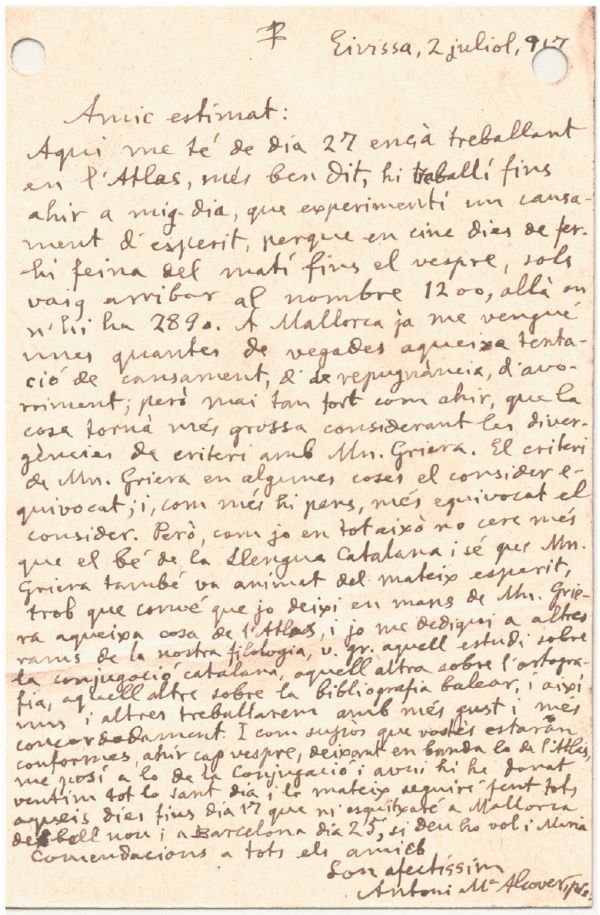 Eivissa, 2 juliol, 917
Amic estimat:
Aqui me té de dia 27 ençà treballant
en l'Atlas, més ben dit, hi traballí fins
ahir a mig-dia, que experimentí un cansa-
ment d'esperit, perque en cinc dies de fer-
hi feina del matí fins el vespre, sols
vaig arribar al nombre 1200, allà on
n'hi ha 2890. A Mallorca ja me vengué
unes quantes de vegades aqueixa tenta-
ció de cansament, d' de repugnància, d'avo-
rriment; però mai tan fort com ahir, que la
cosa tornà més grossa considerant les diver-
gències de criteri amb Mn. Griera. El criteri
de Mn. Griera en algunes coses el consider e-
quivocat; i, com més hi pens, més equivocat el
consider. Però, com jo en tot això no cerc més
que el bé de la Llengua Catalana i sé que Mn.
Griera també va animat del mateix esperit,
trob que convé que jo deixi en mans de Mn. Grie-
ra aqueixa cosa de l'Atlas, i jo me dediqui a altres
rams de la nostra filologia, v. gr. aquell estudi sobre
la conjugació catalana, aquell altra sobre l'ortogra-
fia, aquell altre sobre la bibliografia balear, i així
uns i altres treballarem amb més gust i més
concordadament. I com supòs que vostès estaràn
conformes, ahir cap vespre, deixant en banda lo de l'Atlas,
me posí a lo de la Conjugació i avui hi he donat
ventim tot lo sant dia i lo mateix seguiré fent tots
aqueis dies fins dia 17 que m'esquitxaré a Mallorca
de bell nou i a Barcelona dia 25, si Deu ho vol i Maria
Comendacions a tots els amics
Son afectíssim
Antoni Mª Alcover, pre.